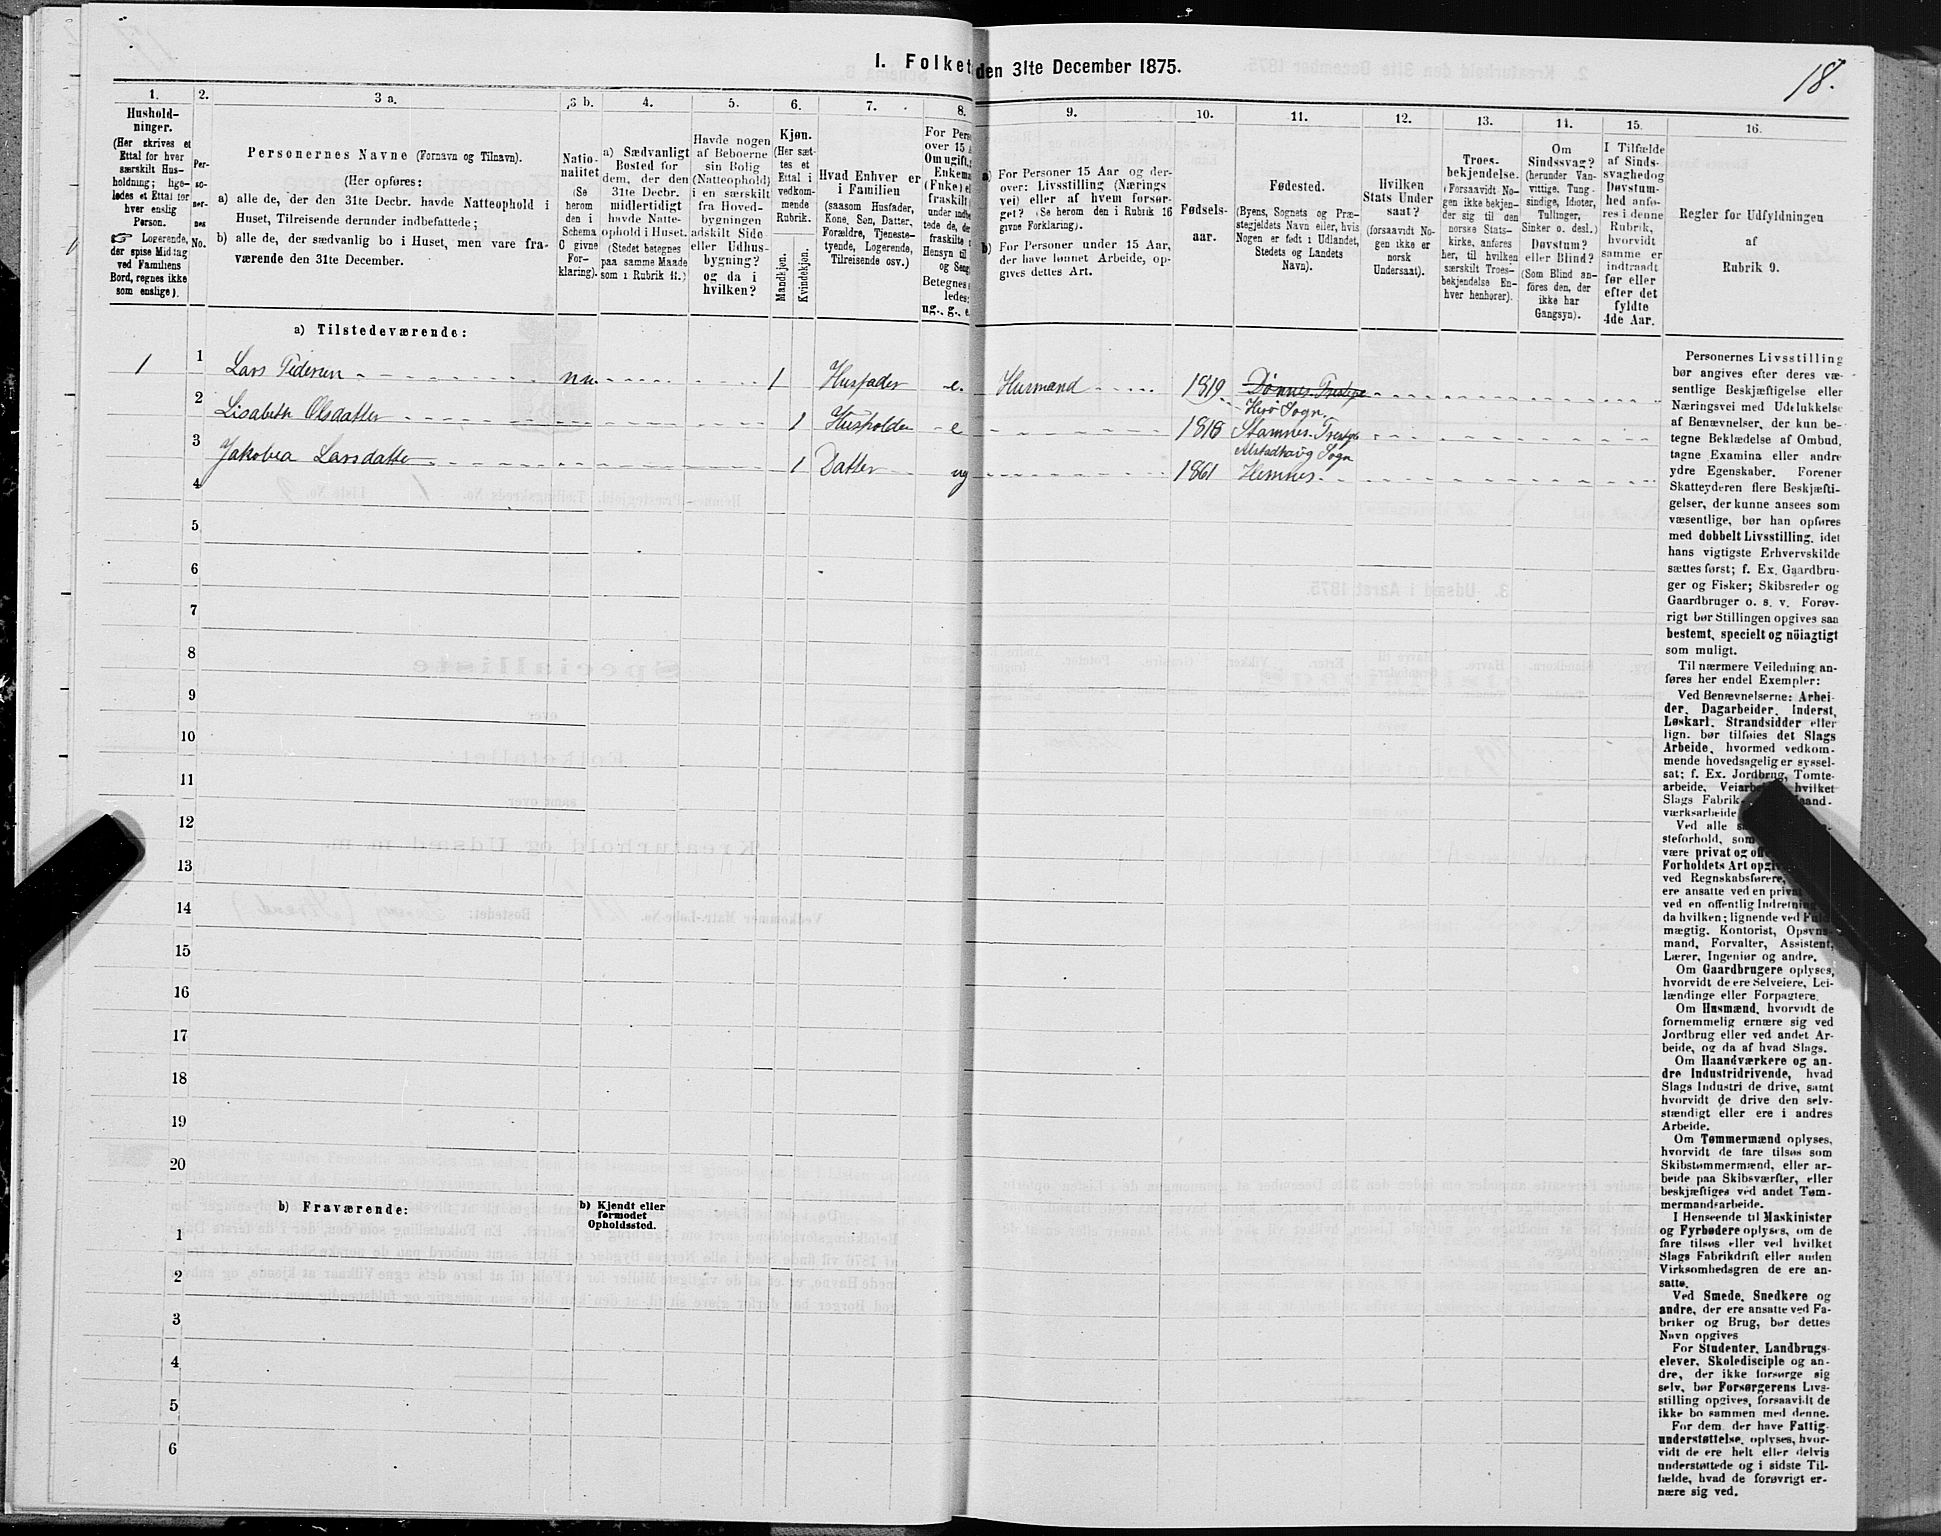 1. Folket den 31te December 1875.
18.
1. 2. 3 a. 3 b. 4. 5. 6. 7. 8. 9. 10. 11. 12. 13. 14. 15. 16.
Hushold-
ninger.
(Her skrives et
Ettal for hver
særskilt Hus-
holdning; lige-
ledes et Ettal for
hver enslig
Person.
☞ Logerende,
der spise Middag
ved Familiens
Bord, regnes ikke
som enslige).
Per-
so-
ner-
nes
No.
Personernes Navne (Fornavn og Tilnavn).
(Her opføres:
a) alle de, der den 31te Decbr. havde Natteophold i
Huset, Tilreisende derunder indbefattede;
b) alle de, der sædvanlig bo i Huset, men vare fra-
værende den 31te December.
Natio-
nalitet
(Se
herom
den i
Schema
C givne
For-
klaring).
a) Sædvanligt
Bosted for
dem, der den
31te Decbr.
midlertidigt
havde Natte-
ophold i Huset.
(Stedet betegnes
paa samme Maade
som i Rubrik 11.)
Havde nogen
af Beboerne
sin Bolig
(Natteophold)
i en særskilt
fra Hoved-
bygningen
adskilt Side
eller Udhus-
bygning?
og da i
hvilken?
Kjøn.
(Her sæt-
tes et
Ettal i
vedkom-
mende
Rubrik.
Mandkjøn.
Kvindekjøn.
Hvad Enhver er
i Familien
(saasom Husfader,
Kone, Søn, Datter,
Forældre, Tjeneste-
tyende, Logerende,
Tilreisende osv.)
For Pers
over 15 A
Om ugift,
Enkema
(Enke) el
fraskilt
under indbe
tede de, der
fraskilte
Hensyn til
og Seng
Betegnes
ledes:
ug., g., e.
a) For Personer 15 Aar og der-
over: Livsstilling (Nærings
vei) eller af hvem forsør-
get? (Se herom den i Rubrik 16
givne Forklaring).
b) For Personer under 15 Aar,
der have lønnet Arbeide, op-
gives dettes Art.
Fødsels-
aar.
Fødested.
(Byens, Sognets og Præ-
stegjeldets Navn eller, hvis
Nogen er født i Udlandet,
Stedets og Landets
Navn).
Hvilken
Stats Under
saat?
(forsaavidt No-
gen ikke er
norsk
Undersaat).
Troes-
bekjendelse.
(Forsaavidt No-
gen ikke bekjen-
der sig til den
norske Stats-
kirke, anføres
her, til hvilken
særskilt Troes-
bekjendelse En-
hver henhører).
Om
Sindssvag?
(herunder Van-
vittige, Tung-
sindige, Idioter,
Tullinger,
Sinker o. desl.)
Døvstum?
eller Blind?
(Som Blind an-
føres den, der
ikke har
Gangsyn).
I Tilfælde
af Sinds-
svaghed
Døvstum-
hed anfø-
res i denne
Rubrik,
hvorvidt
samme er
indtraadt
før eller
efter det
fyldte
4de Aar.
Regler for Udfyldningen
af
Rubrik 9.
a) Tilstedeværende:
1 1 Lars Pedersen nn. 1 Husfader e. Husmand 1819 Dønnes Prestgj
Herø Sogn.
2 Lisabeth Olsdatter 1 Husholder e 1818 Stamnes Prestgj
Alstadhaug Sogn
3 Jakobea Larsdatter 1 Datter ug 1861 Hemnes
4
5
6
7
8
9
10
11
12
13
14
15
16
17
18
19
20
b) Fraværende:
b) Kjendt eller
formodet
Opholdssted.
1
2
3
4
5
6
Personernes Livsstilling
bør angives efter deres væ-
sentlige Beskjæftigelse eller
Næringsvei med Udelukkelse
af Benævnelser, der kun be-
tegne Beklædelse af Ombud,
tagne Examina eller andre
ydre Egenskaber. Forener
Skatteyderen flere Beskjæfti-
gelser, der kunne ansees som
væsentlige, bør han opføres
med dobbelt Livsstilling, idet
hans vigtigste Erhvervskilde
sættes først; f. Ex. Gaardbru-
ger og Fisker; Skibsreder og
Gaardbruger o. s. v. Forøv-
rigt bør Stillingen opgives saa
bestemt, specielt og nöiagtigt
som muligt.
Til nærmere Veiledning an-
føres her endel Exempler:
Ved Benævnelserne: Arbei-
der, Dagarbeider, Inderst,
Løskarl, Strandsidder eller
lign. bør tilføies det Slags
Arbeide, hvormed vedkom-
mende hovedsagelig er syssel-
sat; f. Ex. Jordbrug, Tomte-
arbeide, Veiarbe hvilket
Slags Fabrik- aand-
værksarbeide
Ved alle s
steforhold, som
være privat og off
Forholdets Art opgi
ved Regnskabsførere,
ere ansatte ved en privat
ved en offentlig Indretning
da hvilken; lignende ved Fuld-
mægtig, Kontorist, Opsyns-
mand, Forvalter, Assistent,
Lærer, Ingeniør og andre.
Om Gaardbrugere oplyses,
hvorvidt de ere Selveiere, Lei-
lændinge eller Forpagtere.
Om Husmænd, hvorvidt de
fornemmelig ernære sig ved
Jordbrug eller ved andet Ar-
beide, og da af hvad Slags.
Om Haandværkere og an-
dre Industridrivende, hvad
Slags Industri de drive, samt
hvorvidt de drive den selv-
stændigt eller ere i andres
Arbeide.
Om Tømmermænd oplyses,
hvorvidt de fare tilsøs som
Skibstømmermænd, eller ar-
beide paa Skibsværfter, eller
beskjæftiges ved andet Tøm-
mermandsarbeide.
I Henseende til Maskinister
og Fyrbødere oplyses, om de
fare tilsøs eller ved hvilket
Slags Fabrikdrift eller anden
Virksomhedsgren de ere an-
satte.
Ved Smede, Snedkere og
andre, der ere ansatte ved Fa-
briker og Brug, bør dettes
Navn opgives
For Studenter, Landbrugs-
elever, Skoledisciple og an-
dre, der ikke forsørge sig
selv, bør Forsørgerens Livs-
stilling opgives, forsaavidt de
ikke bo sammen med denne.
For dem, der have Fattig-
understøttelse, oplyses, hvor-
vidt de ere helt eller delvis
understøttede og i sidste Til-
fælde, hvad de forøvrigt er-
nære sig ved.